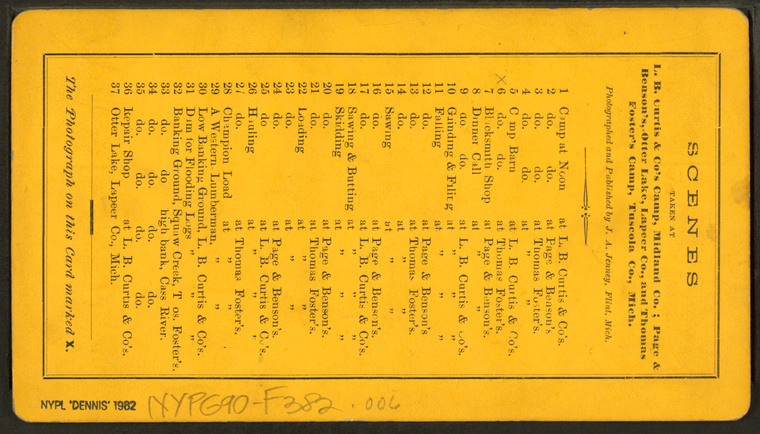 SCENES
TAKEN AT
L. B. Curtis & Co's Camp, Midland Co.; Page &
Benson's, Otter Lake, Lapeer Co., and Thomas
Foster's Camp, Tuscola Co., Mich.
Photographed and Published by J. A. Jenney, Flint, Mich.
1 Camp at Noon at L. B. Curtis & Co's.
2 do. do. at Page & Benson's
3 do. do. at Thomas Foster's.
4 do. do. at „ „
5 Camp Barn at L. B. Curtis & Co's.
X 6 do. do. at Thomas Foster's.
7 Blacksmith Shop at Page & Benson's.
8 Dinner Call at „ „
9 do. do. at L. B. Curtis & Co's.
10 Grinding & Filing at „ „
11 Falling at „ „
12 do. at Page & Benson's
13 do. at Thomas Foster's.
14 do. at „
15 Sawing at „ „
16 do. at Page & Benson's.
17 do. at L. B. Curtis & Co's.
18 Sawing & Butting at „ „
19 Skidding at „ „
20 do. at Page & Benson's.
21 do. at Thomas Foster's.
22 Loading at „ „
23 do. at „ „
24 do. at Page & Benson's.
25 do at L. B. Curtis & Co's.
26 Hauling at „ „
27 do. at Thomas Foster's.
28 Champion Load at „ „
29 A Western Lumberman, „ „
30 Low Banking Ground, L. B. Curtis & Co's.
31 Dam for Flooding Logs „ „
32 Banking Ground, Squaw Creek, Thos. Foster's.
33 do. do high bank, Cass River.
34 do. do. do. do.
35 do. do. do. do.
36 Repair Shop at L. B. Curtis & Co's.
37 Otter Lake, Lapeer Co., Mich.
The Photograph on this Card marked X.
NYPL 'DENNIS' 1982 NYPG90-F382 .006